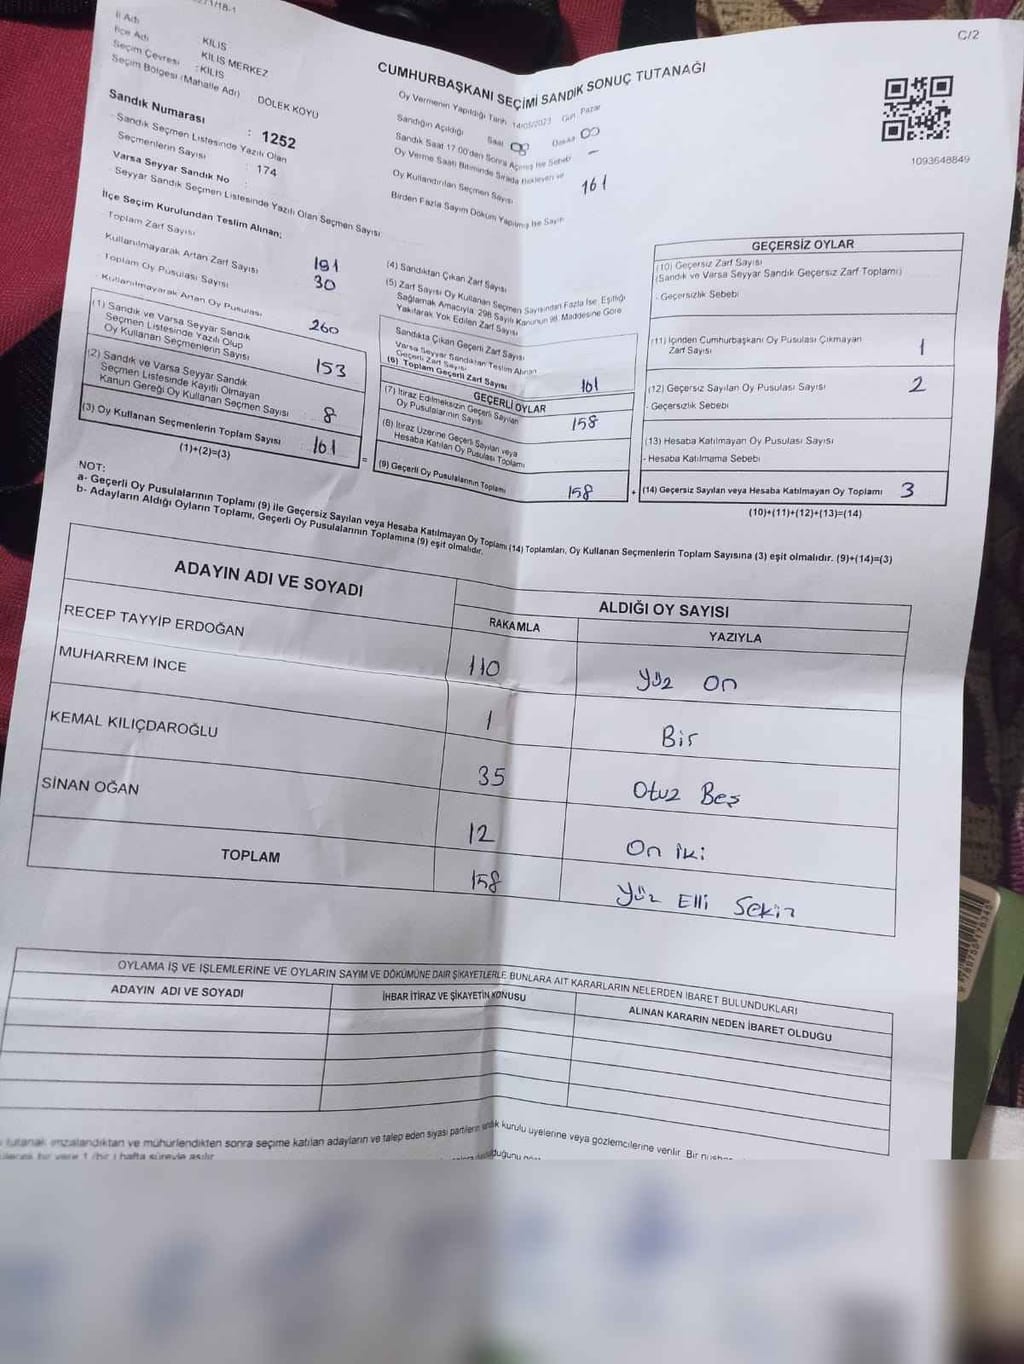 C/2
CUMHURBAŞKANI SEÇİMİ SANDIK SONUÇ TUTANAĞI
1093648849
İl Adı
KİLİS
İlçe Adı
KİLİS MERKEZ
Seçim Çevresi : KİLİS
Seçim Bölgesi (Mahalle Adı) : DÖLEK KÖYÜ
Sandık Numarası : 1252
Sandık Seçmen Listesinde Yazılı Olan
Seçmenlerin Sayısı : 174
Varsa Seyyar Sandık No :
Seyyar Sandık Seçmen Listesinde Yazılı Olan Seçmen Sayısı
Oy Vermenin Yapıldığı Tarih 14/05/2023 Gün Pazar
Sandığın Açıldığı Saat 08 Dakika 00
Sandık Saat 17.00'den Sonra Açılmış İse Sebebi -
Oy Verme Saati Bitiminde Sırada Bekleyen ve
Oy Kullandırılan Seçmen Sayısı 161
Birden Fazla Sayım Döküm Yapılmış İse Sayısı
İlçe Seçim Kurulundan Teslim Alınan;
Toplam Zarf Sayısı 191
Kullanılmayarak Artan Zarf Sayısı 30
Toplam Oy Pusulası Sayısı 260
Kullanılmayarak Artan Oy Pusulası
(1) Sandık ve Varsa Seyyar Sandık
Seçmen Listesinde Yazılı Olup
Oy Kullanan Seçmenlerin Sayısı 153
(2) Sandık ve Varsa Seyyar Sandık
Seçmen Listesinde Kayıtlı Olmayan
Kanun Gereği Oy Kullanan Seçmen Sayısı 8
(3) Oy Kullanan Seçmenlerin Toplam Sayısı 161
(1)+(2)=(3)
=
(4) Sandıktan Çıkan Zarf Sayısı
(5) Zarf Sayısı Oy Kullanan Seçmen Sayısından Fazla İse, Eşitliği
Sağlamak Amacıyla 298 Sayılı Kanunun 98. Maddesine Göre
Yakılarak Yok Edilen Zarf Sayısı
Sandıkta Çıkan Geçerli Zarf Sayısı
Varsa Seyyar Sandıktan Teslim Alınan
Geçerli Zarf Sayısı
(6) Toplam Geçerli Zarf Sayısı 161
GEÇERLİ OYLAR
(7) İtiraz Edilmeksizin Geçerli Sayılan
Oy Pusulalarının Sayısı 158
(8) İtiraz Üzerine Geçerli Sayılan veya
Hesaba Katılan Oy Pusulası Toplamı
(9) Geçerli Oy Pusulalarının Toplamı 158
+
GEÇERSİZ OYLAR
(10) Geçersiz Zarf Sayısı
(Sandık ve Varsa Seyyar Sandık Geçersiz Zarf Toplamı)
- Geçersizlik Sebebi
(11) İçinden Cumhurbaşkanı Oy Pusulası Çıkmayan
Zarf Sayısı 1
(12) Geçersiz Sayılan Oy Pusulası Sayısı 2
- Geçersizlik Sebebi
(13) Hesaba Katılmayan Oy Pusulası Sayısı
- Hesaba Katılmama Sebebi
(14) Geçersiz Sayılan veya Hesaba Katılmayan Oy Toplamı 3
(10)+(11)+(12)+(13)=(14)
NOT:
a- Geçerli Oy Pusulalarının Toplamı (9) ile Geçersiz Sayılan veya Hesaba Katılmayan Oy Toplamı (14) Toplamları, Oy Kullanan Seçmenlerin Toplam Sayısına (3) eşit olmalıdır. (9)+(14)=(3)
b- Adayların Aldığı Oyların Toplamı, Geçerli Oy Pusulalarının Toplamına (9) eşit olmalıdır.
ADAYIN ADI VE SOYADI
ALDIĞI OY SAYISI
RAKAMLA YAZIYLA
RECEP TAYYİP ERDOĞAN 110 Yüz On
MUHARREM İNCE 1 Bir
KEMAL KILIÇDAROĞLU 35 Otuz Beş
SİNAN OĞAN 12 On iki
TOPLAM 158 Yüz Elli Sekiz
OYLAMA İŞ VE İŞLEMLERİNE VE OYLARIN SAYIM VE DÖKÜMÜNE DAİR ŞİKAYETLERLE BUNLARA AİT KARARLARIN NELERDEN İBARET BULUNDUKLARI
ADAYIN ADI VE SOYADI İHBAR İTİRAZ VE ŞİKAYETİN KONUSU ALINAN KARARIN NEDEN İBARET OLDUĞU
tutanak imzalandıktan ve mühürlendikten sonra seçime katılan adayların ve talep eden siyasi partilerin sandık kurulu üyelerine veya gözlemcilerine verilir. Bir
bir yere 1 (bir) hafta süreyle asılır.